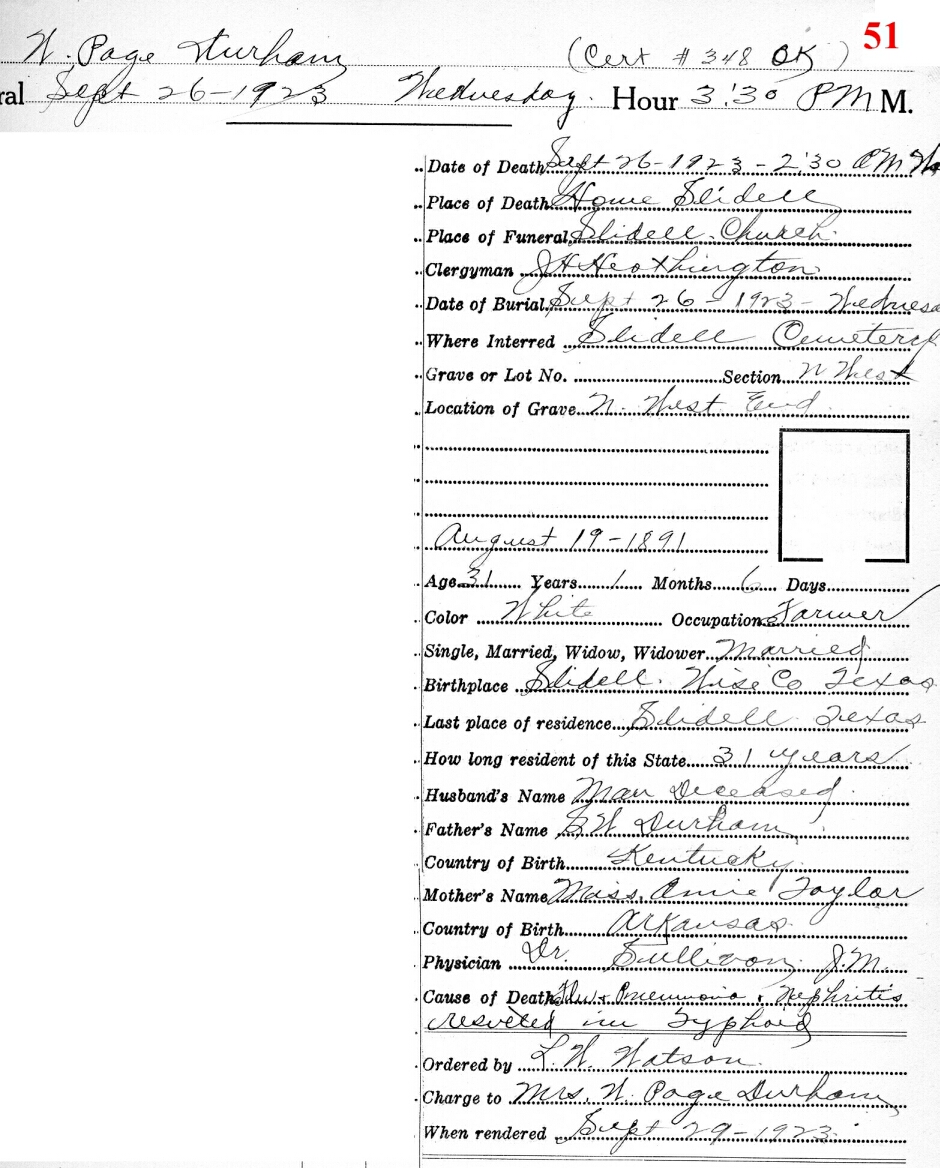 W. Page Durham (Cert # 348 OK) 51
ral Sept 26-1923 Wednesday. Hour 3:30 PM M.
Date of Death Sept 26-1923-2:30 AM
Place of Death Home Slidell
Place of Funeral Slidell Church.
Clergyman J H Heathington
Date of Burial Sept 26-1923-Wednesd
Where Interred Slidell Cemetery
Grave or Lot No. Section N West
Location of Grave N. West End.
August 19-1891
Age 31 Years 1 Months 6 Days
Color White Occupation Farmer
Single, Married, Widow, Widower Married
Birthplace Slidell. Wise Co Texas
Last place of residence Slidell Texas
How long resident of this State 31 years
Husband's Name Man Deceased.
Father's Name B.W. Durham
Country of Birth Kentucky.
Mother's Name Miss. Annie Taylor
Country of Birth Arkansas.
Physician Dr. Sullivan. J.M.
Cause of Death Flu + Pneumonia + Nephritis
resveted in Typhoid
Ordered by L.W. Watson.
Charge to Mrs. W. Page Durham
When rendered Sept 29-1923.